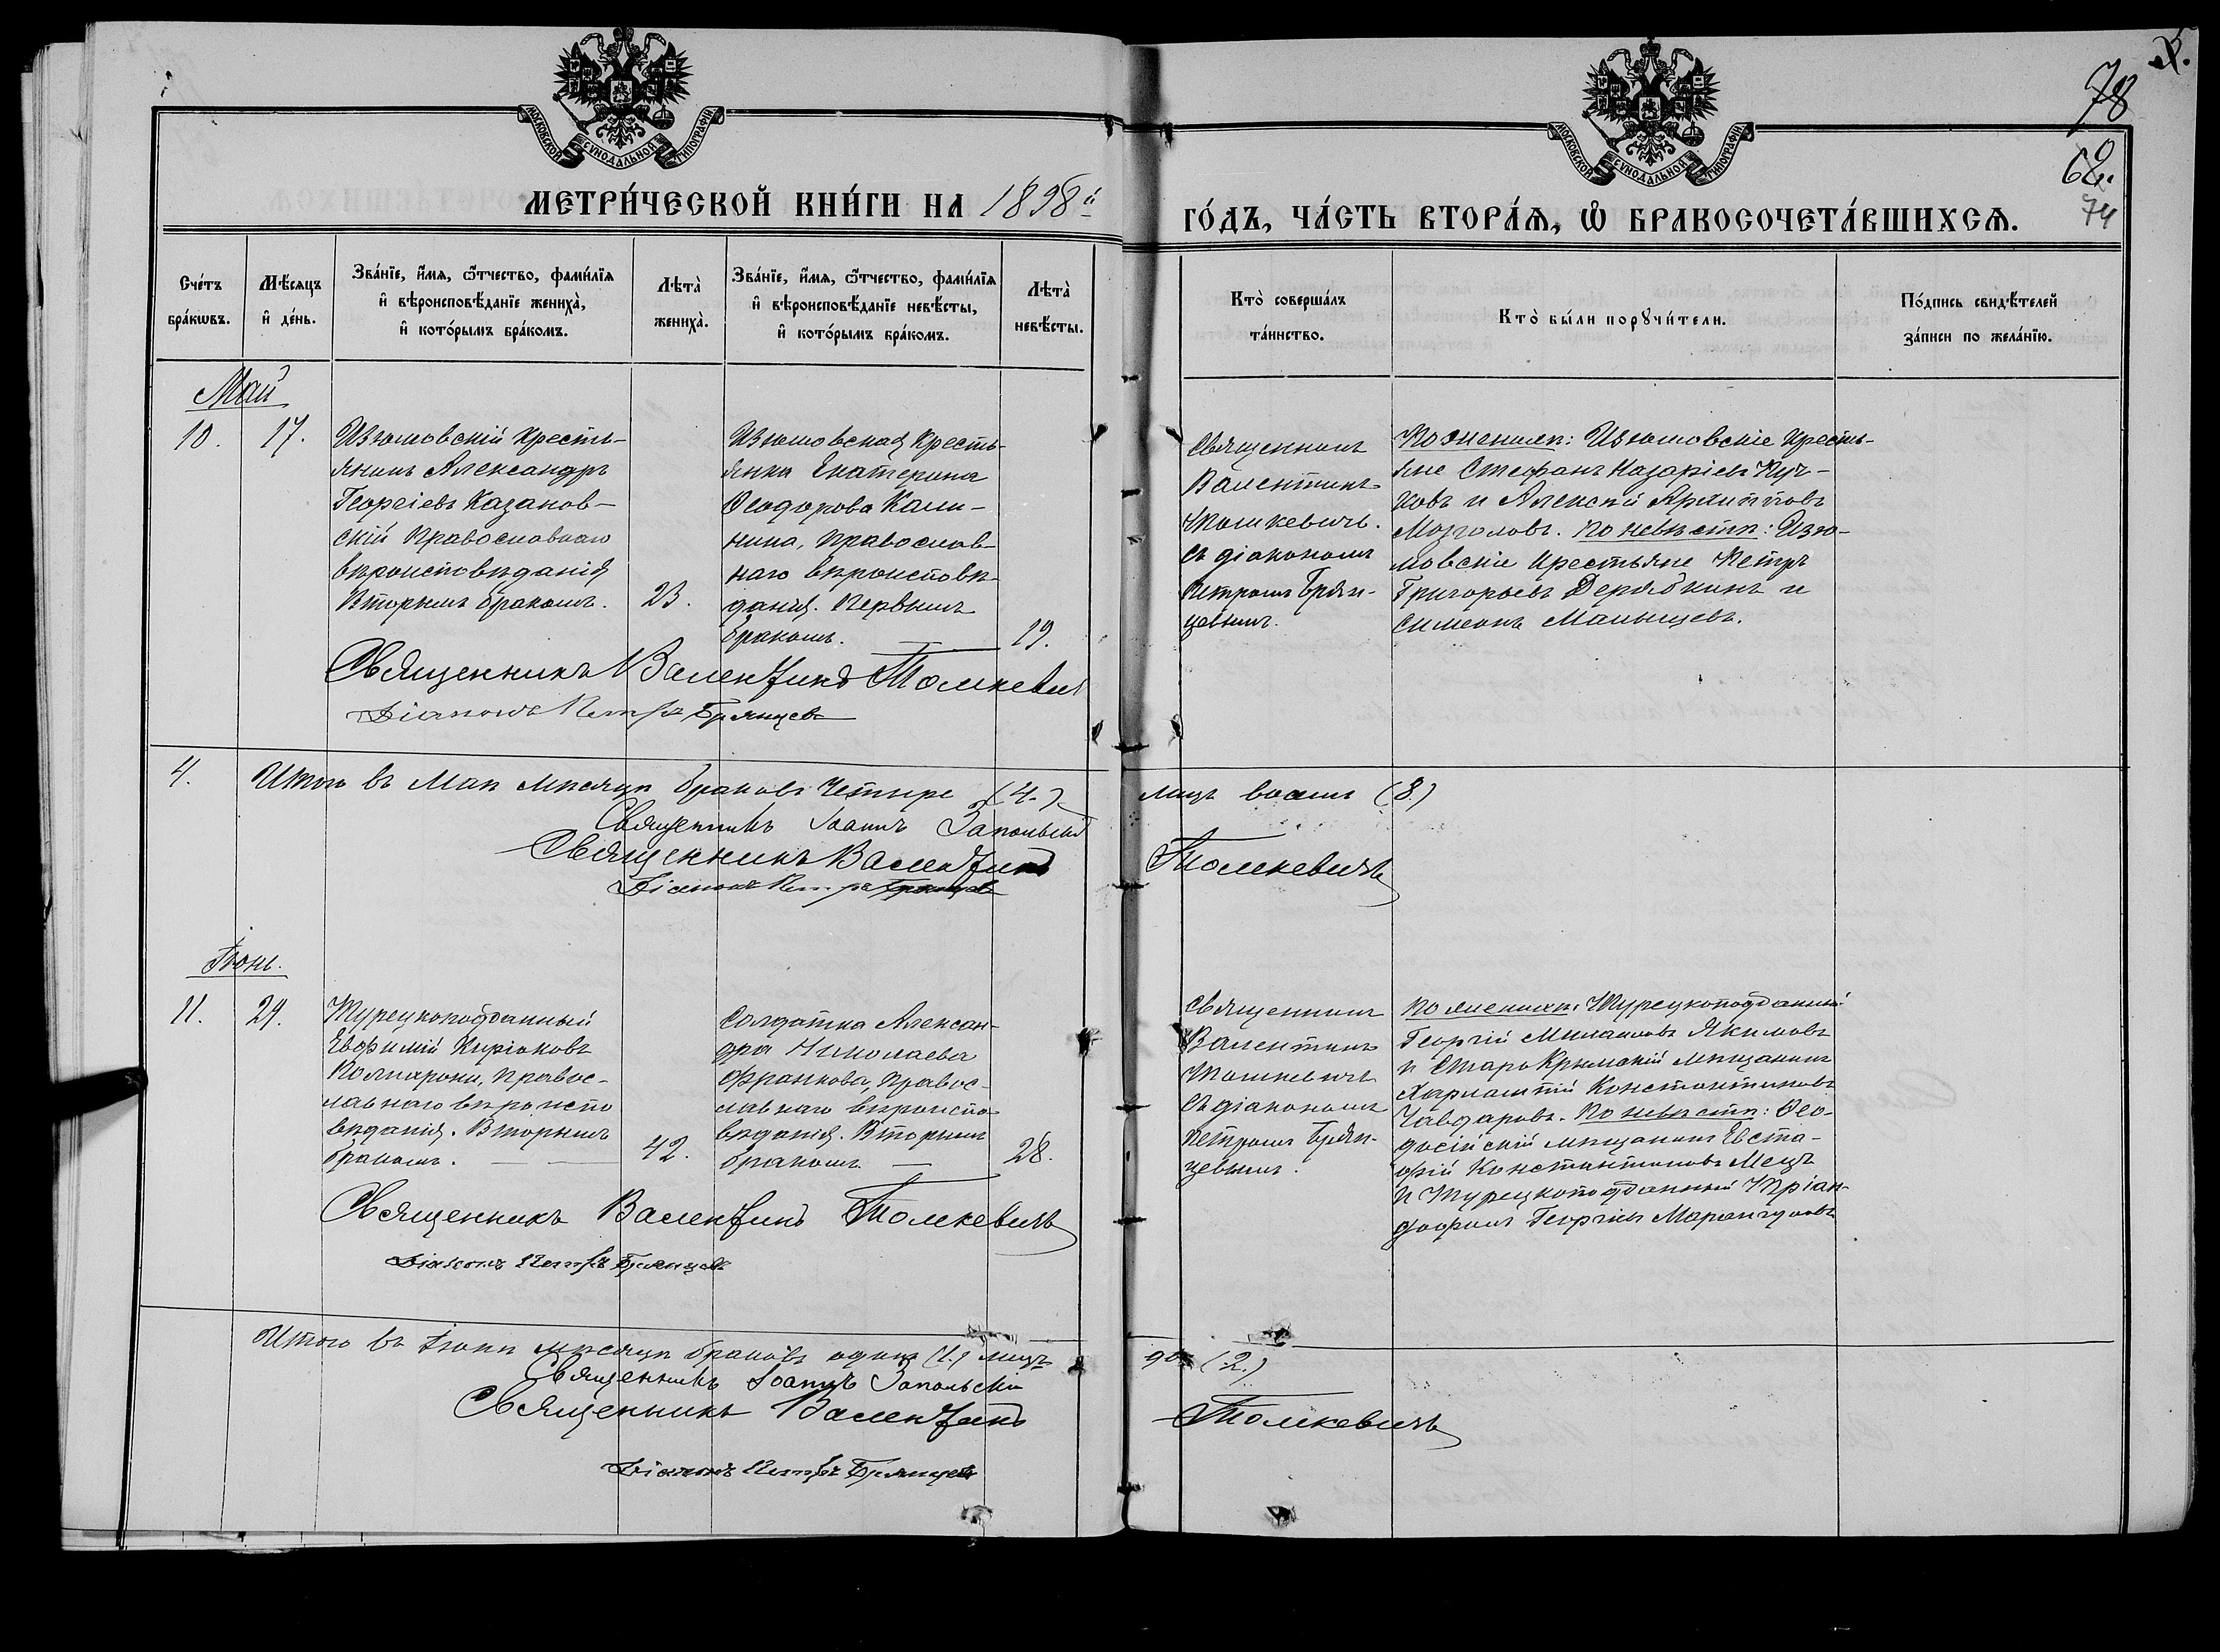 78
62.
74
МОСКОВСКОЙ СУНОДАЛЬНОЙ ТИПОГРАФІИ
МОСКОВСКОЙ СУНОДАЛЬНОЙ ТИПОГРАФІИ
МЕТРИ́ЧЕСКОЙ КНИ́ГИ НА 1898й
ГО́ДЪ, ЧА́СТЬ ВТОРА́Ѧ, Ѽ БРАКОСОЧЕТА́ВШИХСѦ.
Сче́тъ
бра́кѡвъ.
Мѣ́сяцъ
и҆ де́нь.
Зва́нїе, и҆́мя, ѻ҆́тчество, фами́лїя
и҆ вѣроисповѣ́данїе жениха̀,
и҆ кото́рымъ бра́комъ.
Лѣта̀
жениха̀.
Зва́нїе, и҆́мя, ѻ҆́тчество, фами́лїя
и҆ вѣроисповѣ́данїе невѣ́сты,
и҆ кото́рымъ бра́комъ.
Лѣта̀
невѣ́сты.
Кто̀ соверша́лъ
та́инство.
Кто̀ бы́ли порꙋчи́тели.
По́дпись свидѣ́телей
за́писи по жела́нїю.
Май
10.
17.
Изюмовскій кресть-
янинъ Александръ
Георгіевъ Казанов-
скій православнаго
вѣроисповѣданія
вторымъ бракомъ.
23.
Изюмовская кресть-
янка Екатерина
Ѳеодорова Кали-
нина, православ-
наго вѣроисповѣ-
данія. Первымъ
бракомъ.
19.
Священникъ
Валентинъ
Томкевичъ.
съ діакономъ
Петромъ Брян-
цевымъ.
По женихѣ: Изюмовскіе кресть-
яне Стефанъ Назаріевъ
и Алексѣй Архипповъ
По невѣстѣ: Изю-
мовскіе крестьяне Петръ
Григорьевъ Дерябкинъ и
Симеонъ Малыщевъ.
Священникъ Валентинъ Томкевич
Діаконъ Петръ Брянцевъ
4.
Итого въ Маѣ мѣсяцѣ браковъ четыре (4.)
лицъ восемь (8.)
Священникъ Іоаннъ Запольскій
Священникъ Валентинъ
Томкевичъ
Діаконъ Петръ Брянцевъ
Іюнь.
11.
24.
Турецкоподданный
Евфимій Киріаковъ
православнаго вѣроиспо
вѣданія. Вторымъ
бракомъ.
42.
Солдатка Алексан-
дра Николаева
Франкова, правос-
лавнаго вѣроиспо-
вѣданія. Вторымъ
бракомъ.
28.
Священникъ
Валентинъ
Томкевичъ
съ діакономъ
Петромъ Брян-
цевымъ.
По женихѣ: Турецкоподданный
Георгій Михаиловъ Якимовъ
и Старо Крымскій мѣщанинъ
Харлампій Константиновъ
Чавдаровъ. По невѣстѣ: Ѳео-
досійскій мѣщанинъ Евста-
фій Константиновъ Мецъ
и Турецкоподданный Тріан-
дафилъ Георгіевъ
Священникъ Валентинъ Томкевичъ
Діаконъ Петръ Брянцевъ
Итого въ Іюнѣ мѣсяцѣ браковъ одинъ (1.) лицъ
два (2.)
Священникъ Іоаннъ Запольскій
Священникъ Валентинъ
Томкевичъ
Діаконъ Петръ Брянцевъ